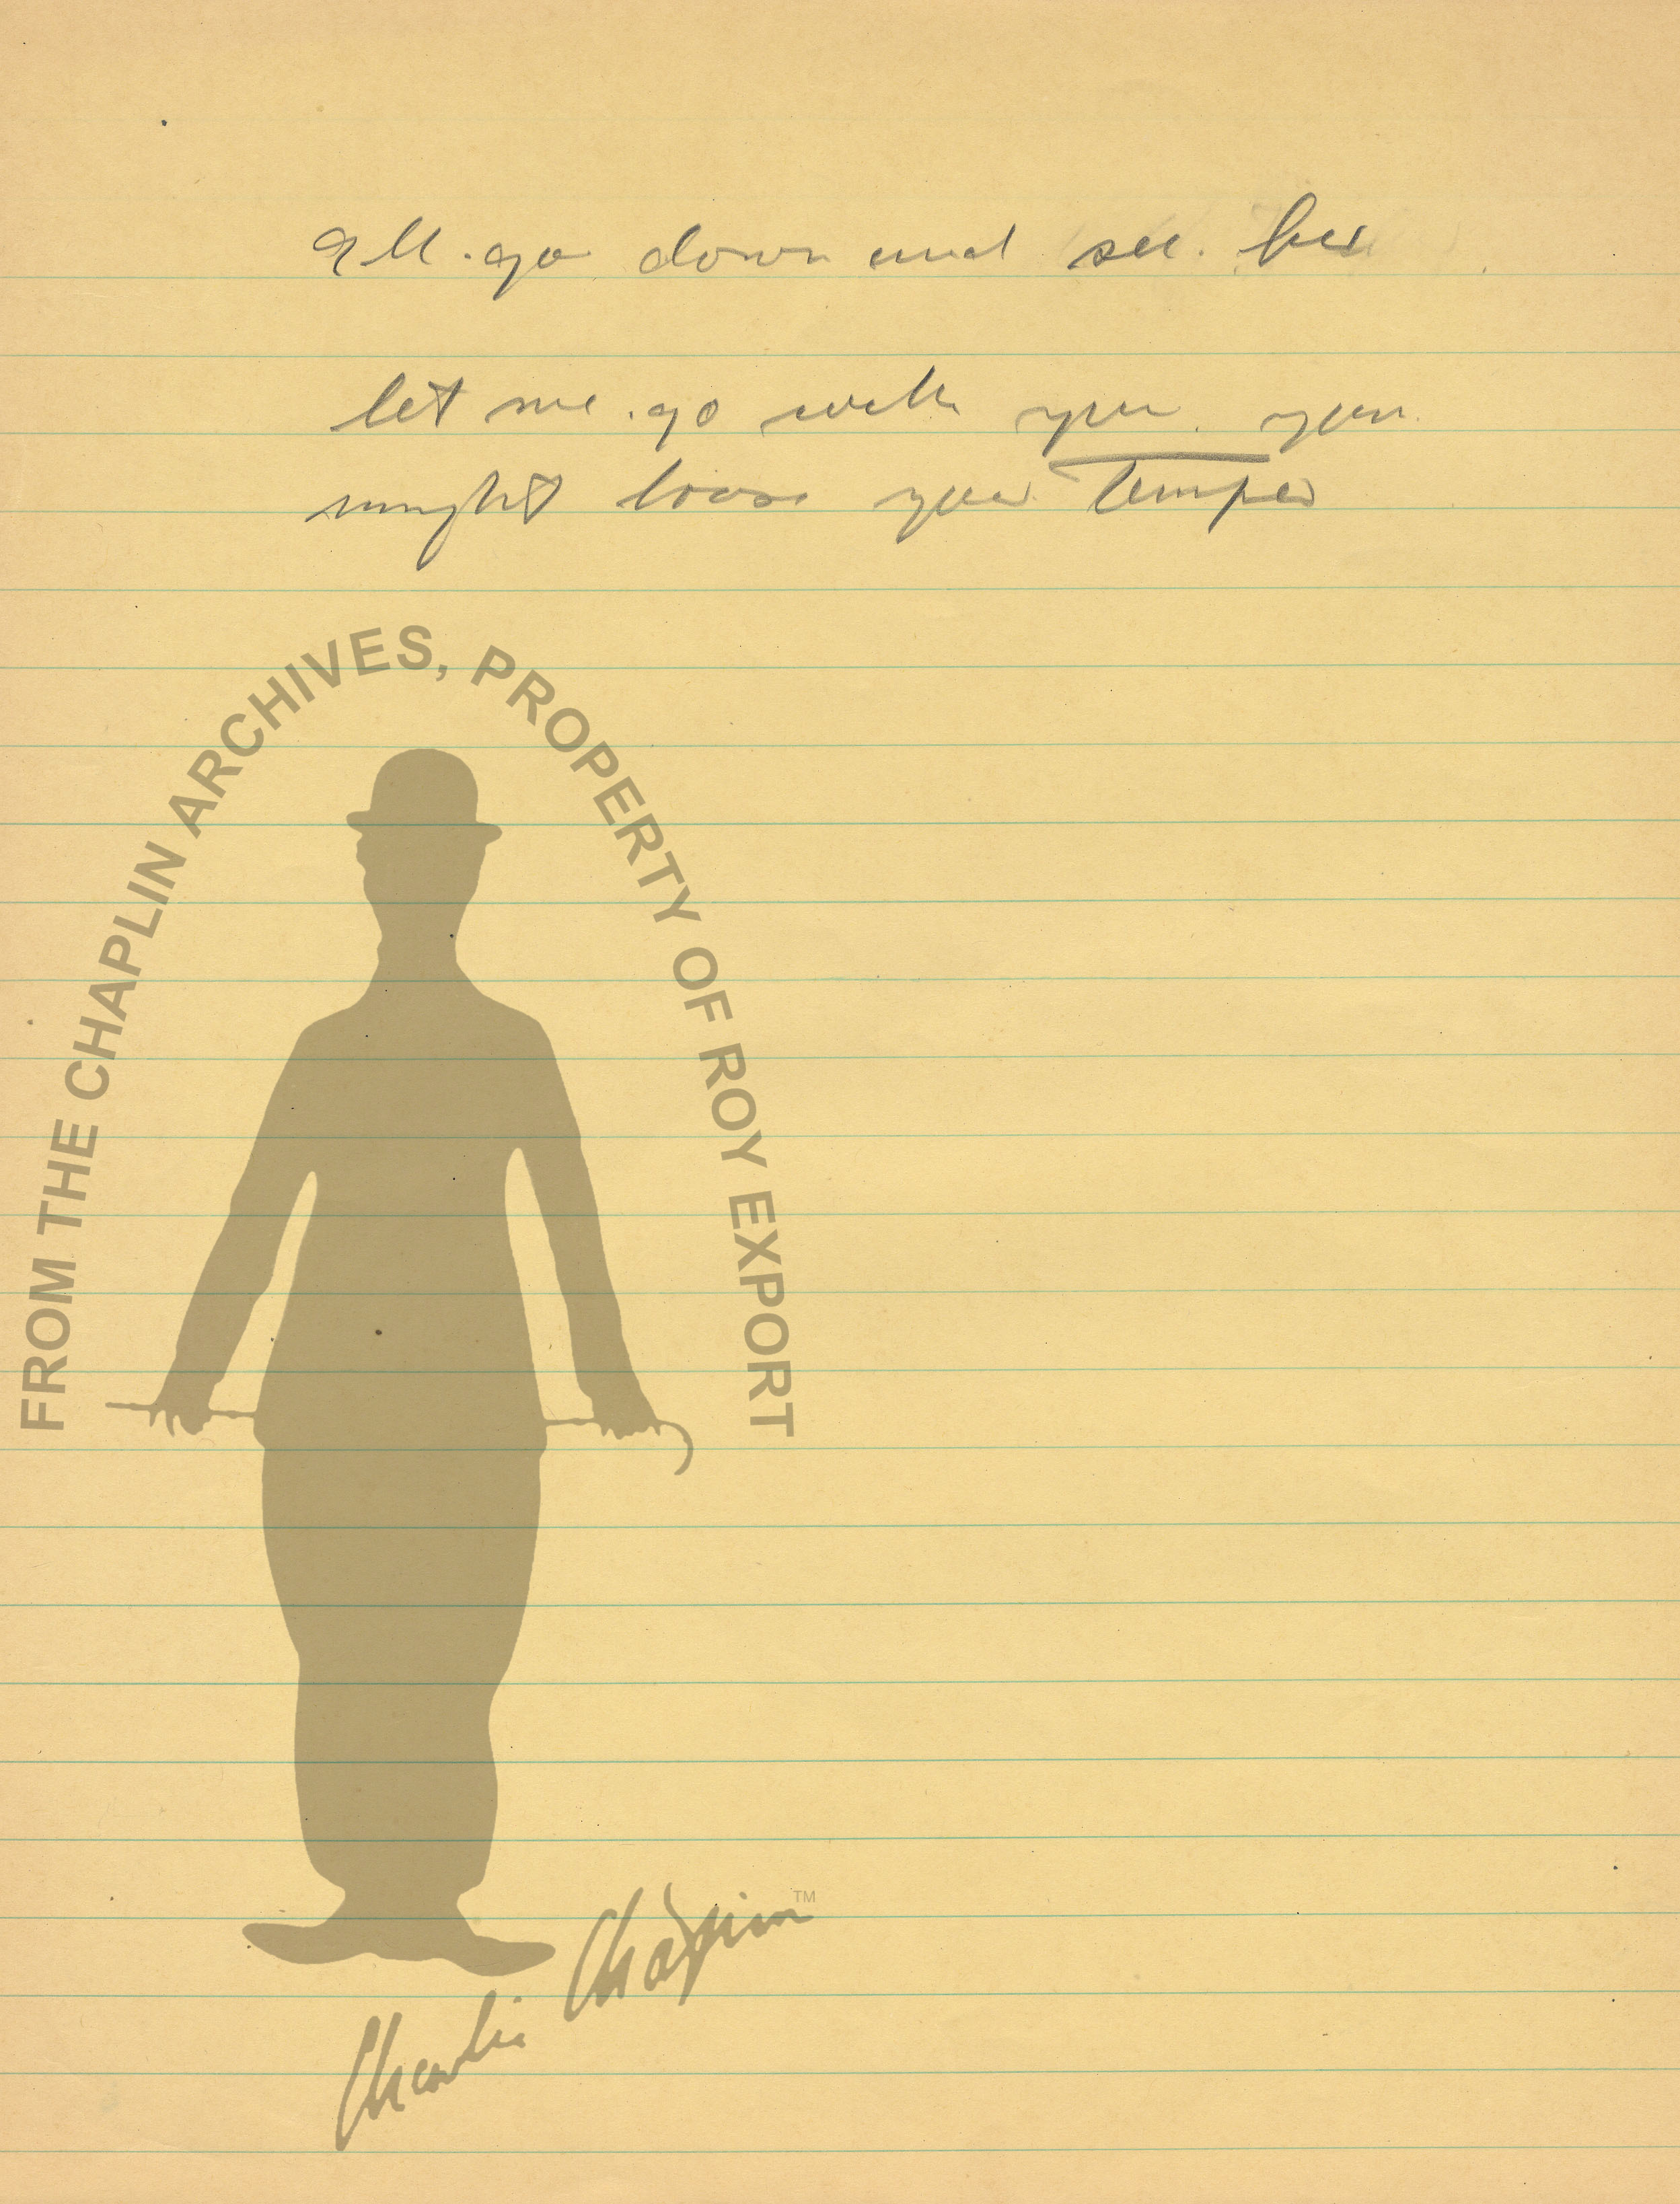 I'll go down and see her
let me go with you. you
might loose your Temper
FROM THE CHAPLIN ARCHIVES, PROPERTY OF ROY EXPORT
Charlie Chaplin TM